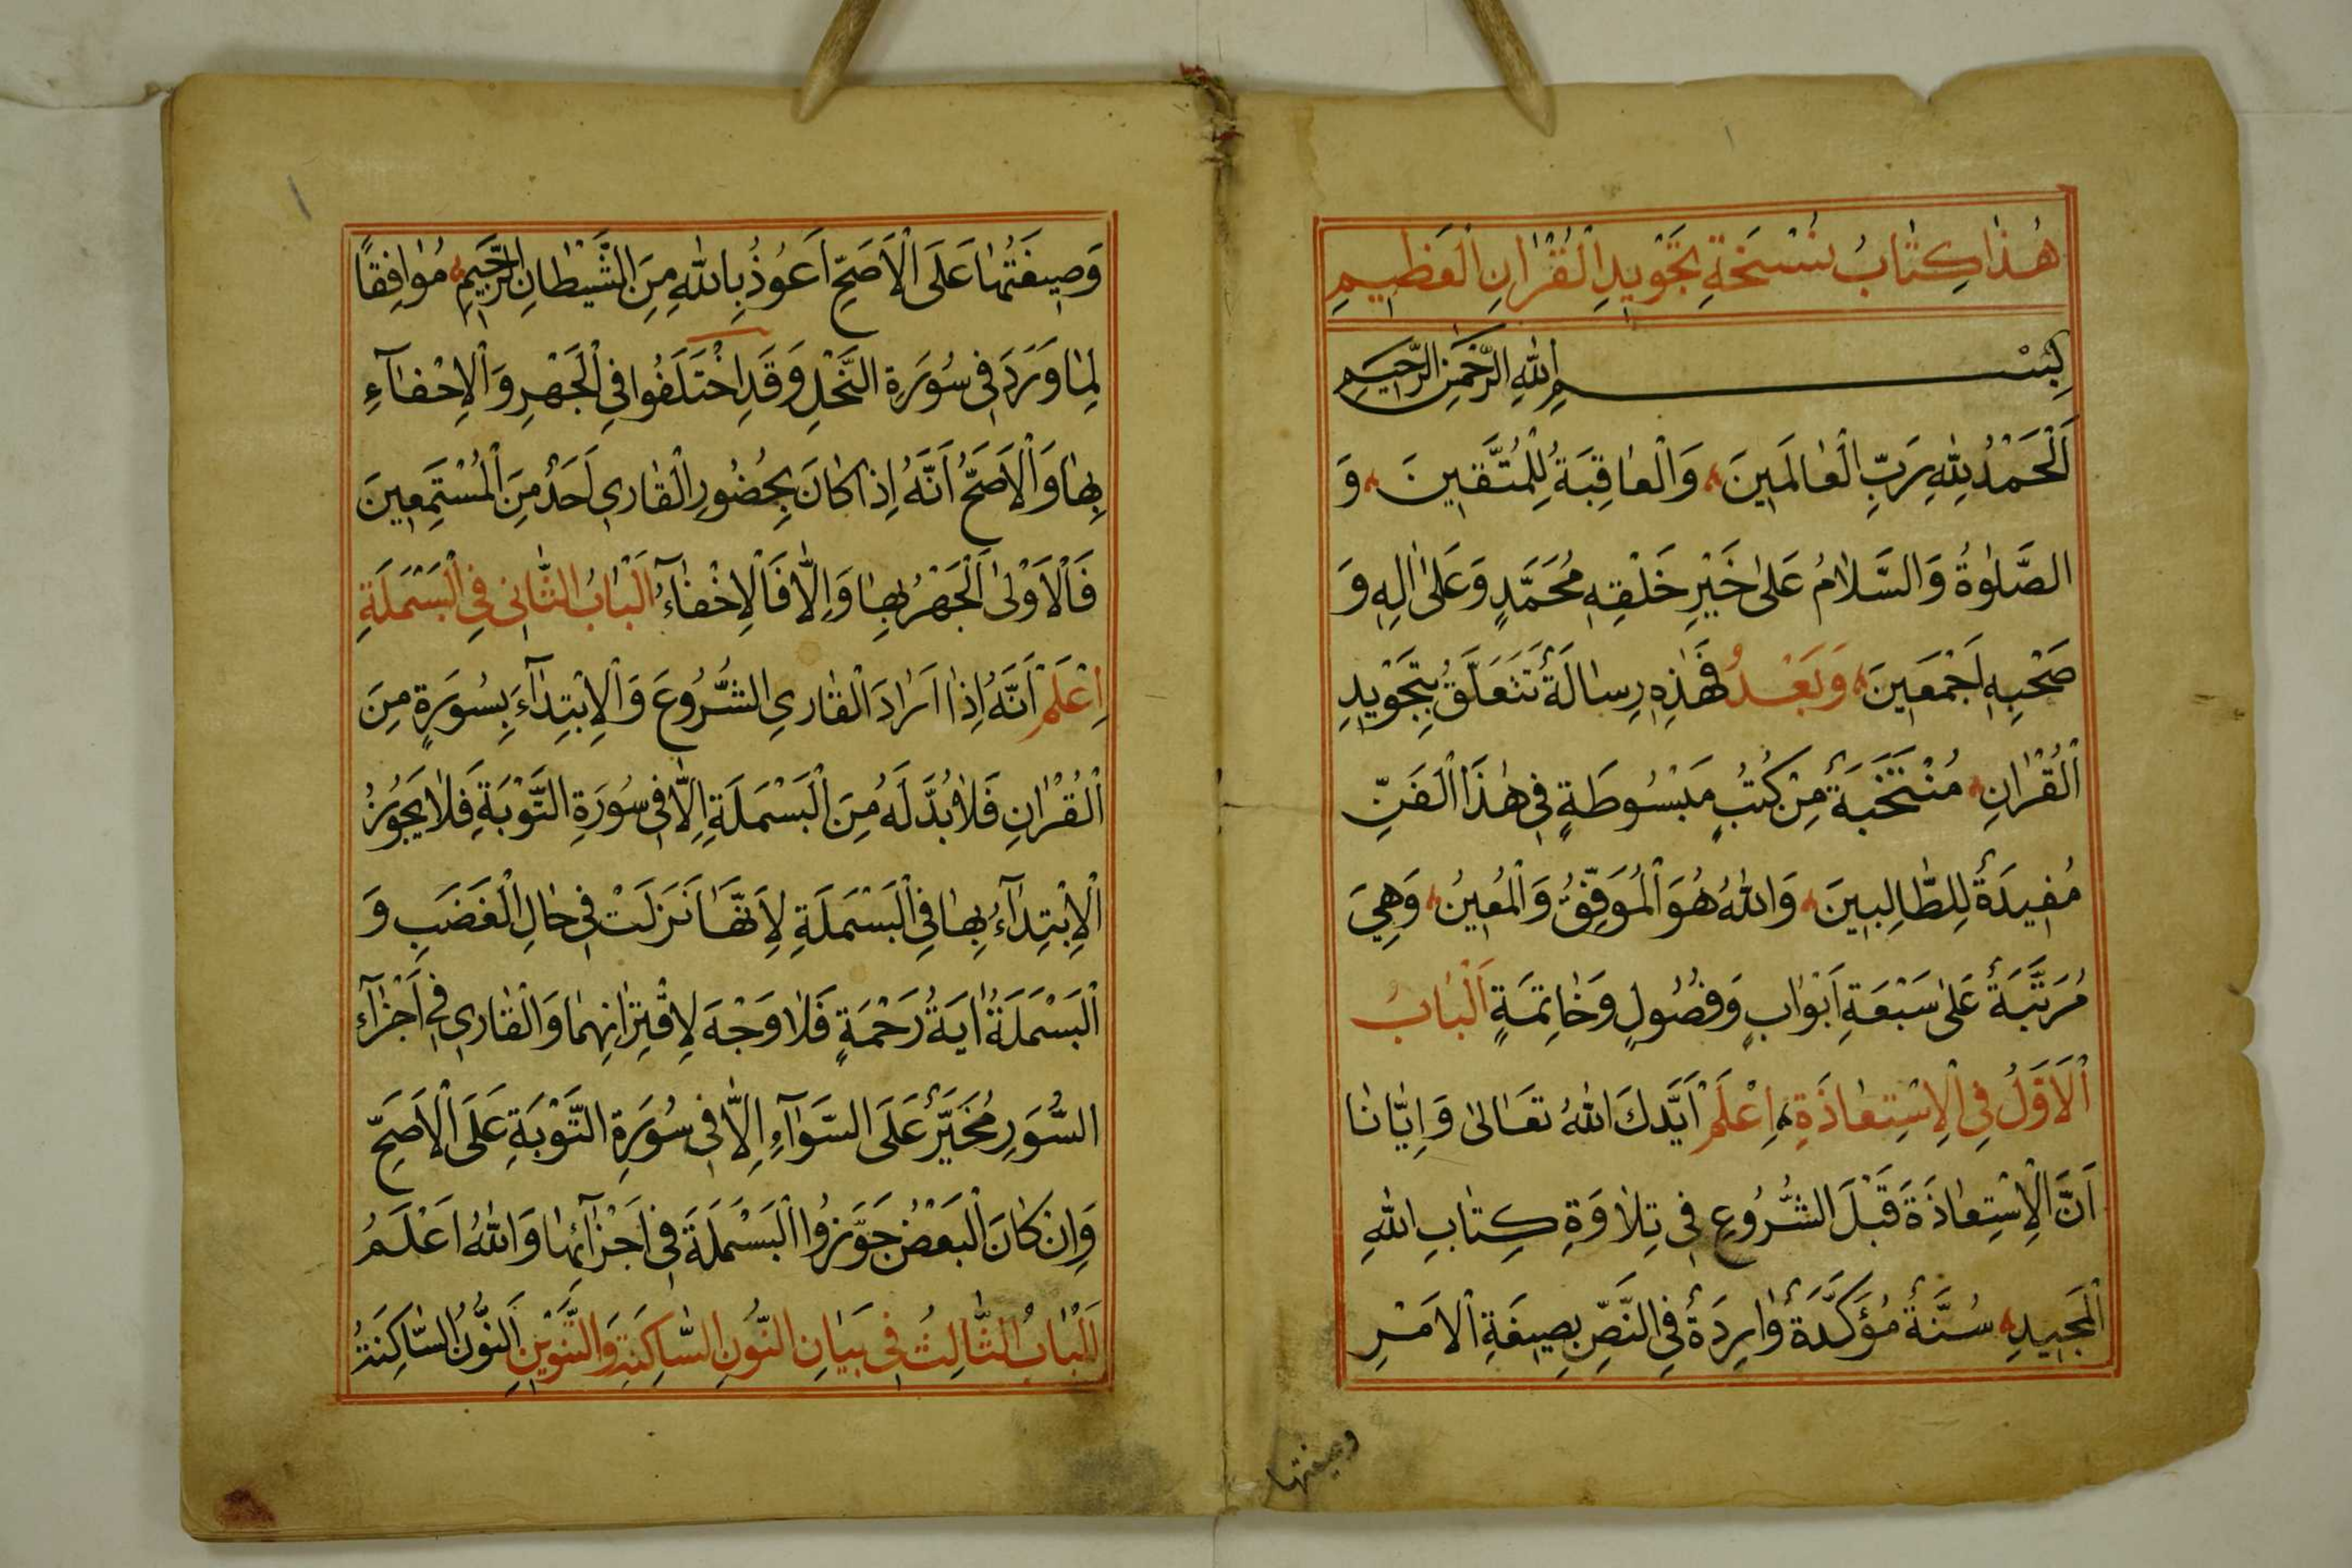 هٰذَا كِتَابُ نُسْخَةِ تَجْوِيدِ الْقُرْاٰنِ الْعَظِيمِ
بِسْمِ اللهِ الرَّحْمٰنِ الرَّحِيمِ
اَلْحَمْدُ لِلّٰهِ رَبِّ الْعَالَمِينَ وَالْعَاقِبَةُ لِلْمُتَّقِينَ وَ
الصَّلٰوةُ وَالسَّلَامُ عَلٰى خَيْرِ خَلْقِهِ مُحَمَّدٍ وَعَلٰى اٰلِهِ وَ
صَحْبِهِ اَجْمَعِينَ وَبَعْدُ فَهٰذِهِ رِسَالَةٌ تَتَعَلَّقُ بِتَجْوِيدِ
الْقُرْاٰنِ مُنْتَخَبَةٌ مِنْ كُتُبٍ مَبْسُوطَةٍ فِي هٰذَا الْفَنِّ
مُفِيدَةٌ لِلطَّالِبِينَ وَاللهُ هُوَ الْمُوَفِّقُ وَالْمُعِينُ وَهِيَ
مُرَتَّبَةٌ عَلٰى سَبْعَةِ اَبْوَابٍ وَفُصُولٍ وَخَاتِمَةٍ اَلْبَابُ
الْاَوَّلُ فِي الْاِسْتِعَاذَةِ اِعْلَمْ اَيَّدَكَ اللهُ تَعَالٰى وَاِيَّانَا
اَنَّ الْاِسْتِعَاذَةَ قَبْلَ الشُّرُوعِ فِي تِلَاوَةِ كِتَابِ اللهِ
الْمَجِيدِ سُنَّةٌ مُؤَكَّدَةٌ وَارِدَةٌ فِي النَّصِّ بِصِيغَةِ الْاَمْرِ
وصيغتها
وَصِيغَتُهَا عَلَى الْاَصَحِّ اَعُوذُ بِاللهِ مِنَ الشَّيْطَانِ الرَّجِيمِ مُوَافِقًا
لِمَا وَرَدَ فِي سُورَةِ النَّحْلِ وَقَدِ اخْتَلَفُوا فِي الْجَهْرِ وَالْاِخْفَآءِ
بِهَا وَالْاَصَحُّ اَنَّهُ اِذَا كَانَ بِحُضُورِ الْقَارِي اَحَدٌ مِنَ الْمُسْتَمِعِينَ
فَالْاَوْلٰى الْجَهْرُ بِهَا وَاِلَّا فَالْاِخْفَآءُ اَلْبَابُ الثَّانِي فِي الْبَسْمَلَةِ
اِعْلَمْ اَنَّهُ اِذَا اَرَادَ الْقَارِي الشُّرُوعَ وَالْاِبْتِدَآءَ بِسُورَةٍ مِنَ
الْقُرْاٰنِ فَلَا بُدَّ لَهُ مِنَ الْبَسْمَلَةِ اِلَّا فِي سُورَةِ التَّوْبَةِ فَلَا يَجُوزُ
الْاِبْتِدَآءُ بِهَا فِي الْبَسْمَلَةِ لِاَنَّهَا نَزَلَتْ فِي حَالِ الْغَضَبِ وَ
الْبَسْمَلَةُ اٰيَةُ رَحْمَةٍ فَلَا وَجْهَ لِاقْتِرَانِهِمَا وَالْقَارِي فِي اَجْزَآءِ
السُّوَرِ مُخَيَّرٌ عَلَى السَّوَآءِ اِلَّا فِي سُورَةِ التَّوْبَةِ عَلَى الْاَصَحِّ
وَاِنْ كَانَ الْبَعْضُ جَوَّزُوا الْبَسْمَلَةَ فِي اَجْزَآئِهَا وَاللهُ اَعْلَمُ
اَلْبَابُ الثَّالِثُ فِي بَيَانِ النُّونِ السَّاكِنَةِ وَالتَّنْوِينِ اَلنُّونُ السَّاكِنَةُ